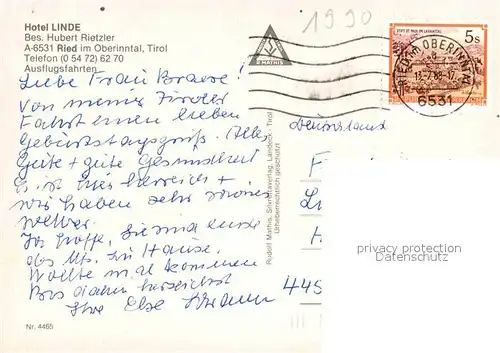 Hotel LINDE
Bes. Hubert Rietzler
A-6531 Ried im Oberinntal, Tirol
Telefon (0 54 72) 62 70
Ausflugsfahrten
1990
R MATHIS
STIFT ST. PAUL IM LAVANTTAL
5s
RIED IM OBERINNTAL
6531
Liebe Frau
Von meiner Tiroler
Fahrt einen lieben
Geburtstagsgruß. Alles
Gute + gute Gesundheit
Es ist hier herrlich +
wir haben sehr schönes
Wetter.
Ich hoffe, Sie sind Ende
des Mts. zu Hause.
Wollte mal kommen
Bis dahin herzlichst
Ihre Else
Deutschland
F
L
H
445
Rudolf Mathis, Silvrettaverlag, Landeck - Tirol
Urheberrechtlich geschützt
privacy protection
Datenschutz
Nr. 4465